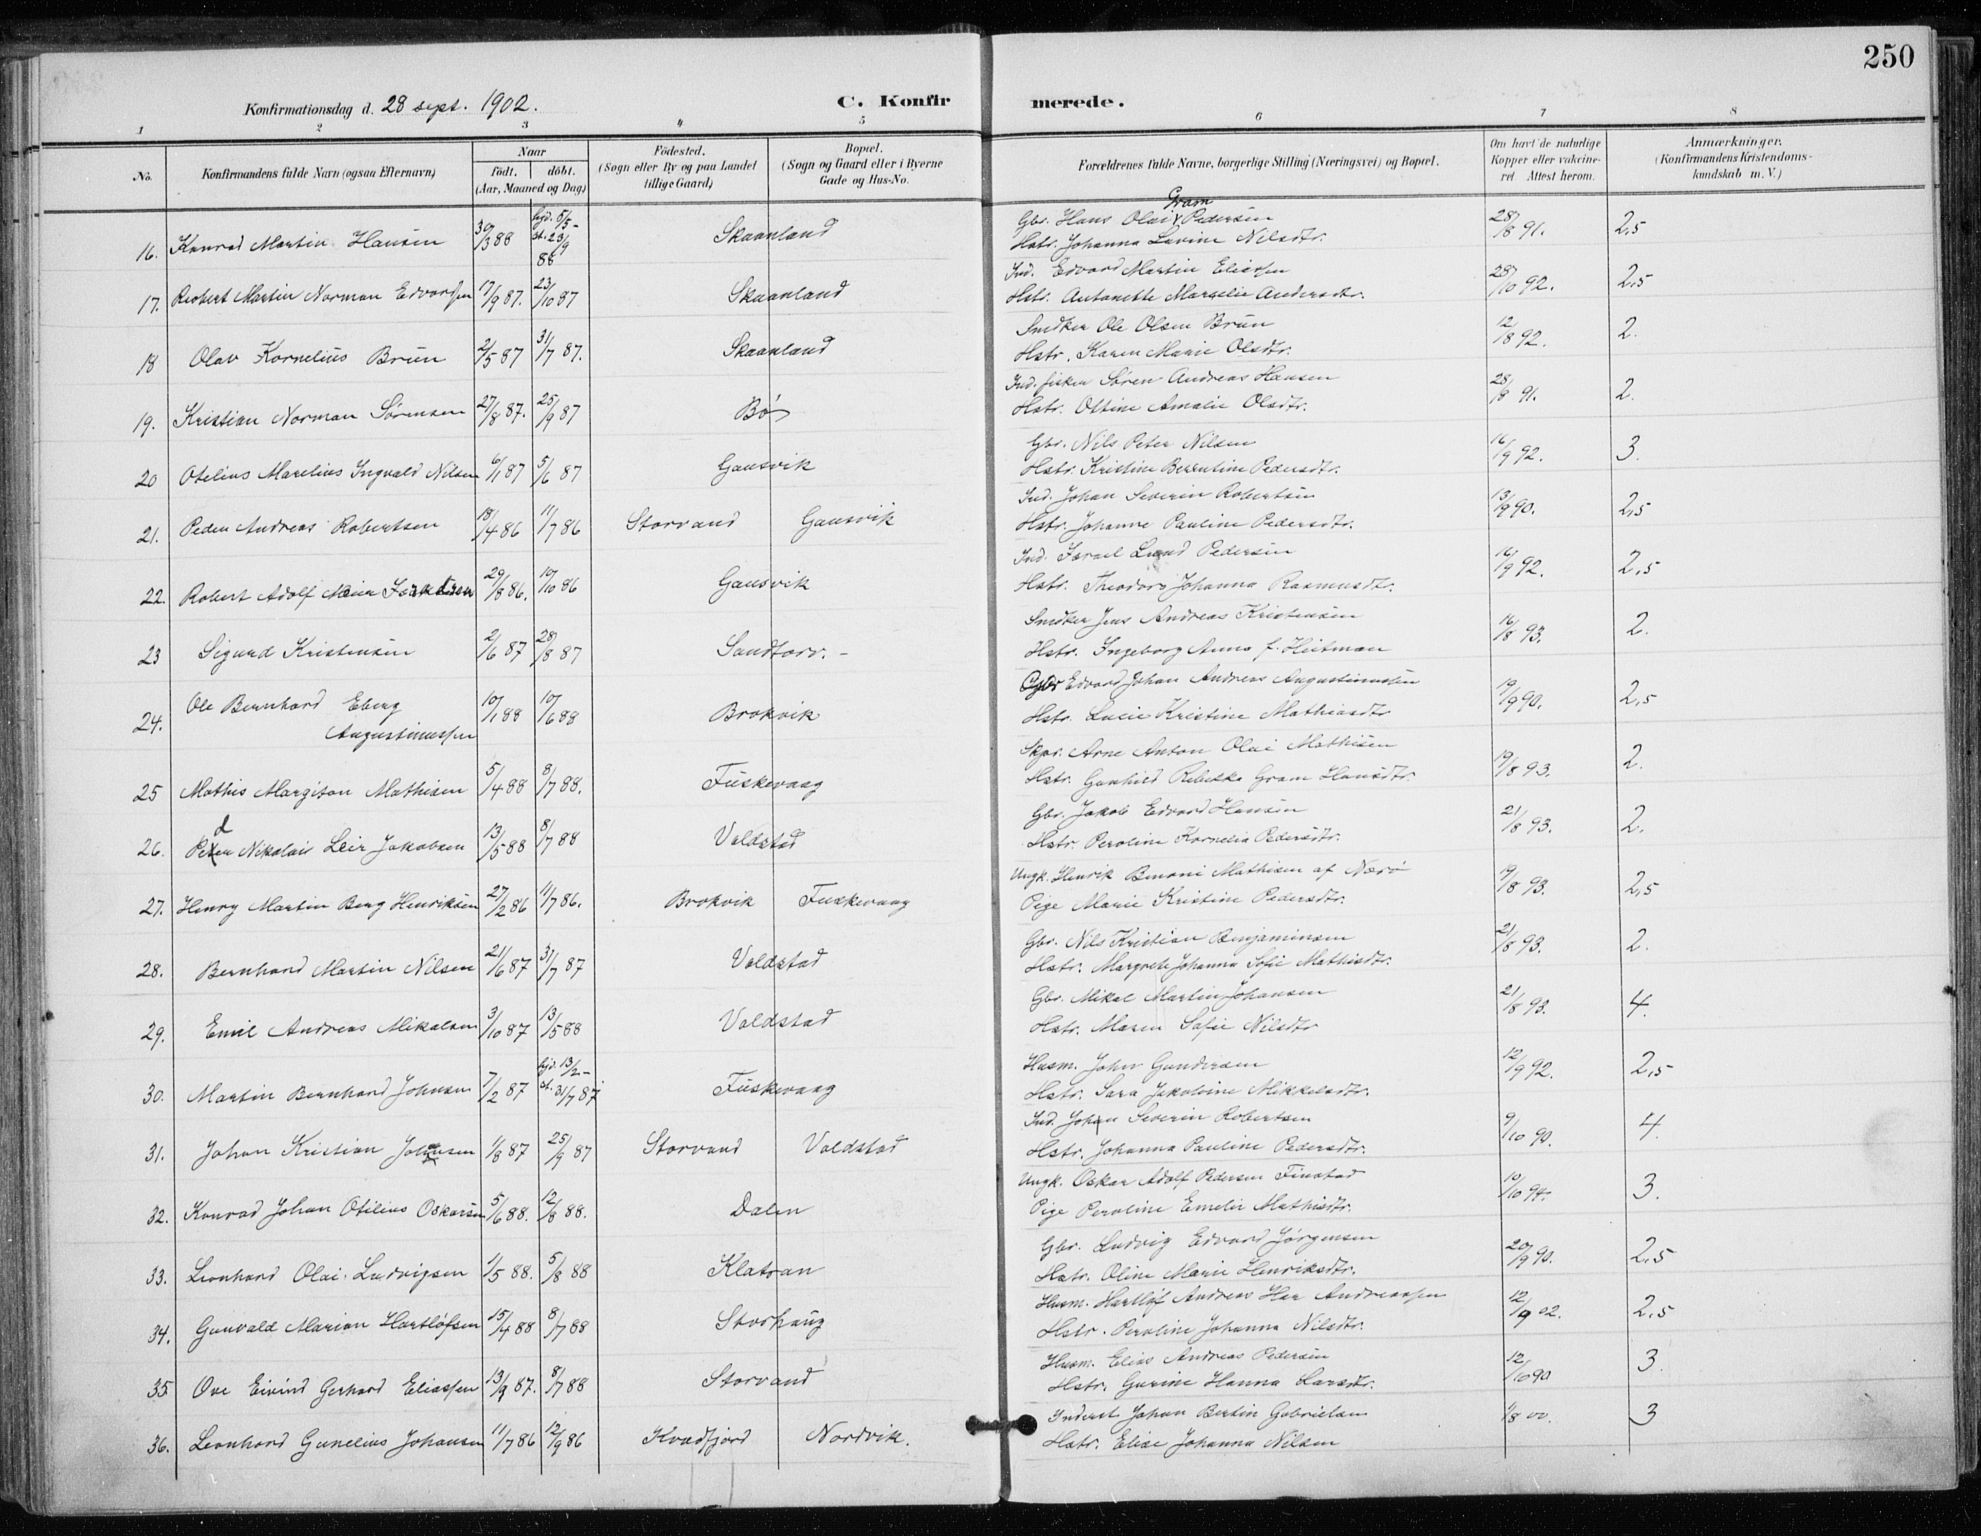 250
Konfirmationsdag d. 28 sept. 1902.
C. Konfirmerede.
1 2 3 4 5 6 7 8
No. | Konfirmandens fulde Navn (ogsaa Efternavn) | Naar født. døbt. (Aar, Maaned og Dag) | Fødested. (Sogn eller By og paa Landet tillige Gaard) | Bopæl. (Sogn og Gaard eller i Byerne Gade og Hus-No. | Forældrenes fulde Navne, borgerlige Stilling (Næringsvei) og Bopæl. | Om havt de naturlige Kopper eller vaccineret Attest herom. | Anmærkninger. (Konfirmandens Kristendomskundskab m. V.)
16. Konrad Martin Hansen 30/3 88 hjd. 5/5 - st. 23/9 88 Skaanland Gbr. Hans Olai Gram Pedersen 28/8 91. 2,5
Hstr. Johanna Lavine Nilsdtr.
17. Robert Martin Norman Edvardsen 17/9 87. 23/10 87 Skaanland Ind. Edvard Martin Eliassen 28/10 92. 2,5
Hstr. Antonette Marselie Andersdtr.
18 Olav Kornelius Brun 2/5 87 31/7 87. Skaanland Smdker Ole Olsen Brun 12/8 92. 2.
Hstr. Karen Marie Olsdtr.
19. Kristian Norman Sørensen 27/8 87. 25/9 87 Bø Ind. fisker Søren Andreas Hansen 28/8 91. 2.
Hstr. Oltine Amalie Olsdtr.
20 Otelius Marelius Ingvald Nilsen 6/1 87 5/6 87 Gausvik Gbr. Nils Peter Nilsen 16/9 92. 3.
Hstr. Kristine Berntine Pedersdtr.
21. Peder Andreas Robertsen 18/4 86 11/7 86 Storvand Gausvik Ind. Johan Severin Robertsen 13/9 90. 2,5
Hstr. Johanne Pauline Pedersdtr.
22. Robert Adolf Meier 29/8 86. 10/10 86 Gausvik Ind. Israel Lund Pedersen 16/9 92. 2,5
Hstr. Theodora Johanna Rasmusdtr.
23 Sigurd Kristensen 2/6 87 28/8 87 Sandtorv. - Smdker Jens Andreas Kristensen 16/8 93. 2.
Hstr. Ingeborg Anna f. Hutman
24. Ole Bernhard Eberg Augustinussen 10/1 88 10/6 88 Brokvik Gbr Edvard Johan Andreas Augustinussen 19/9 90. 2,5
Hstr. Lucie Kristine Mathiasdtr
25 Mathis Margiton Mathisen 5/4 88 8/7 88. Fuskevaag Skpr. Arne Anton Olai Mathisen 19/8 93. 2.
Hstr. Gunhild Rebekka Gram Hansdtr
26. Peder Nikolai Leir Jakobsen 13/5 88 8/7 88 Voldstad Gbr. Jakob Edvard Hansen 21/8 93. 2.
Hstr. Peroline Kornelia Pedersdtr.
27. Henry Martin Berg Henriksen 27/2 86 11/7 86. Brokvik Fuskevaag Ungk. Henrik Benoni Mathisen af Nærø 19/8 93. 2,5
Pige Marie Kristine Pedersdtr.
28. Bernhard Martin Nilsen 21/6 87 31/7 87 Voldstad Gbr. Nils Kristian Benjaminsen 21/8 93. 2.
Hstr. Margrete Johanna Sofie Mathisdtr.
29. Emil Andreas Mikalsen 3/10 87 13/5 88 Voldstad Gbr. Mikal Martin Johansen 21/8 93. 4.
Hstr. Maren Sofie Nilsdtr
30. Martin Bernhard Johnsen 7/2 87 hjd. 13/2 - st. 31/7 87 Fuskevaag Husm. John Gundersen 12/9 92. 2,5
Hstr. Sara Jakobine Mikkelsdtr.
31. Johan Kristian Johnsen 1/8 87 25/9 87 Storvand Voldstad Ind. Johan Severin Robertsen 9/10 90. 4.
Hstr. Johanna Pauline Pedersdtr.
32. Konrad Johan Otilius Oskarsen 5/6 88. 12/8 88. Dalen Ungk. Oskar Adolf Pedersen Finstad 10/10 94. 3.
Pige Peroline Emelie Mathisdtr.
33. Leonhard Olai Ludvigsen 1/5 88. 5/8 88 Klatran Gbr. Ludvig Edvard Jørgensen 20/9 90. 2,5
Hstr. Oline Marie Henriksdtr.
34. Gunvald Marion Hartløfsen 15/4 88 8/7 88 Storhaug Husm. Hartløf Andreas Har Andreassen 12/9 02. 2,5
Hstr. Peroline Johanna Nilsdtr.
35 Ove Eivind Gerhard Eliassen 13/9 87. 8/7 88 Storvand Husm. Elias Andreas Pedersen 12/10 90 3
Hstr. Gurine Hanna Larsdtr.
36. Leonhard Gunelius Johansen 11/7 86 12/9 86 Kvædfjord Nordvik. Inderst Johan Bertin Gabrielsen 1/8 00. 3
Hstr. Elise Johanna Nilsen